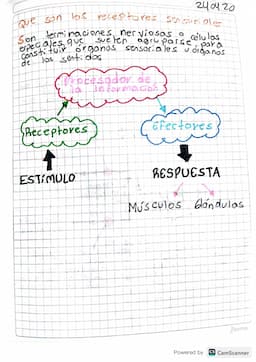 24.04.20
Que son los receptores sensoriales
Son terminaciones nerviosas o células
especiales que suelen agruparse para
constituir organos sensoriales u órganos
de los sentidos
Procesador de
la información
Receptores
Efectores
ESTÍMULO
RESPUESTA
Músculos Glándulas
Powered by CS CamScanner